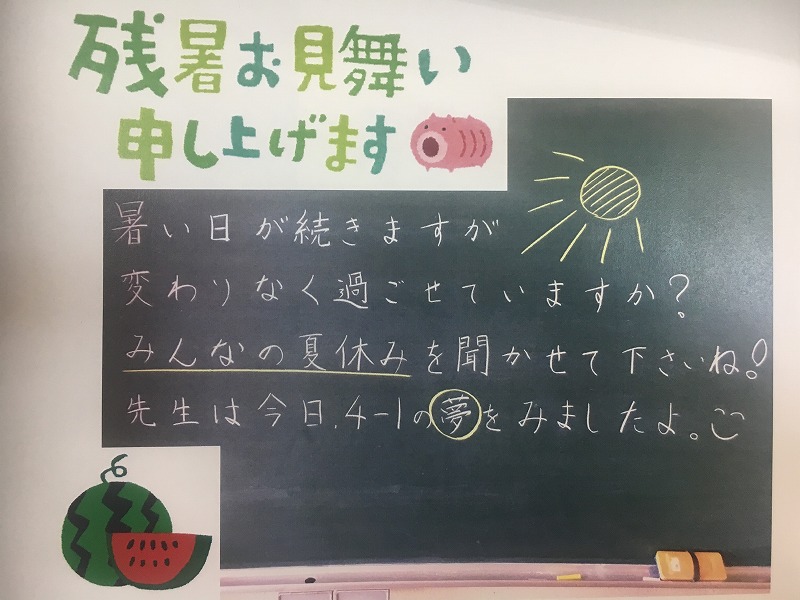 残暑お見舞い
申し上げます
暑い日が続きますが
変わりなく過ごせていますか?
みんなの夏休みを聞かせて下さいね!
先生は今日、4-1の夢をみましたよ。